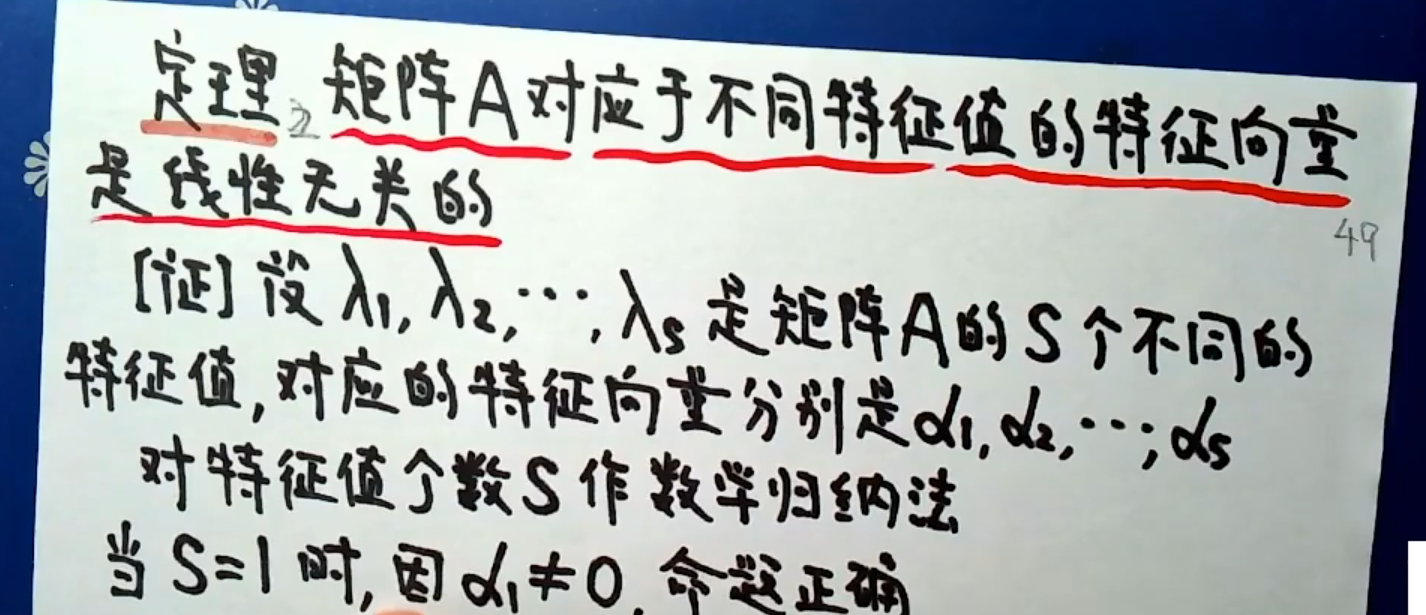 定理2 矩阵A对应于不同特征值的特征向量
是线性无关的
49
[证] 设 λ₁, λ₂, ⋯, λs 是矩阵A的S个不同的
特征值, 对应的特征向量分别是α₁, α₂, ⋯, αs
对特征值个数S作数学归纳法
当 S=1 时, 因 α₁≠0, 命题正确